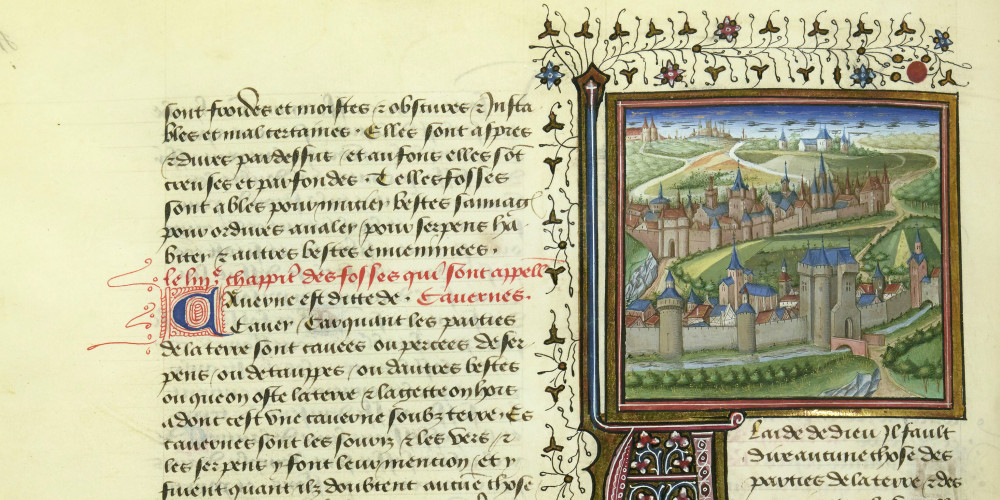 sont froides et moistes ⁊ obscures ⁊ insta
bles et mal certaines . Elles sont aspres
⁊ dures par dessus / et au fons elles sōt
creuses et parfondes . Telles fosses
sont ables pour mucier bestes sauuag
pour ordures aualer / pour serpens ha
biter ⁊ autres bestes enuenimees .
le liiiᵉ chappitᵉ des fosses qui sont appell
Cauerne est ditte de . Cauernes .
Cauer / Car quant les parties
de la terre sont cauees ou percees de ser
pens / ou de tauppes / ou dautres bestes
ou que on oste la terre ⁊ la gette on hors
adont cest vne cauerne soubz terre . Es
cauernes sont les souriz ⁊ les vers / ⁊
les serpens y font leur mencion / et y
fuient quant ilz doubtent aucūe chose
Laide de dieu Il fault
dire aucune chose des
parties de la terre / ⁊ des